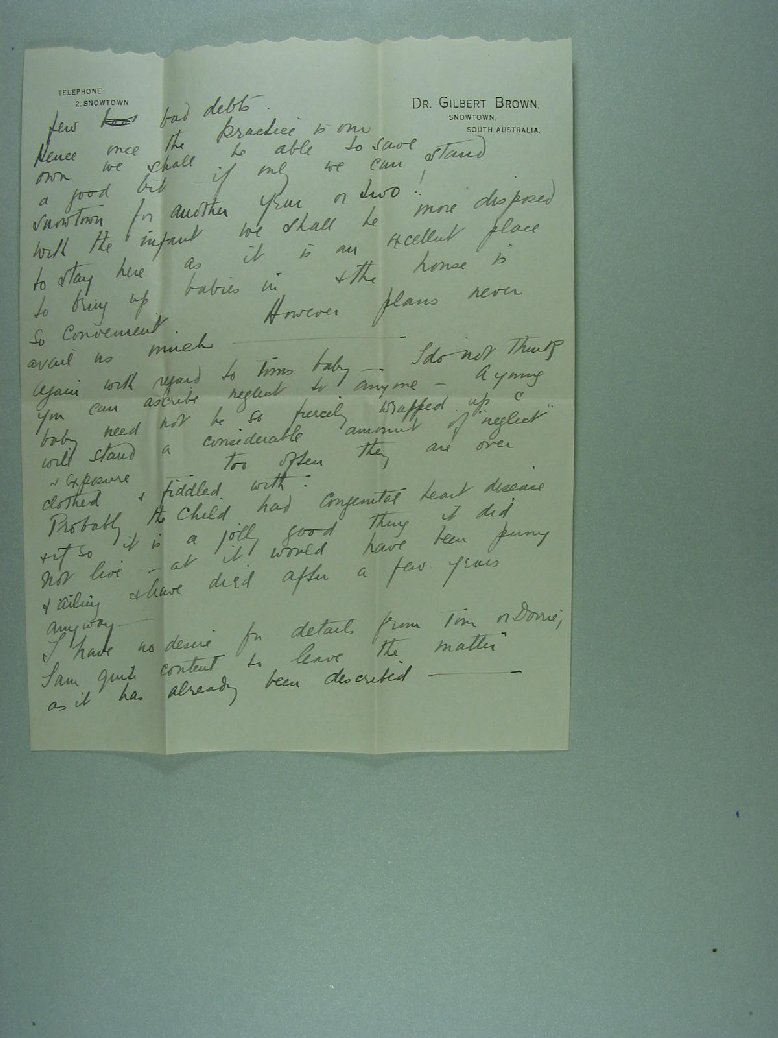 TELEPHONE
2, SNOWTOWN
DR. GILBERT BROWN,
SNOWTOWN,
SOUTH AUSTRALIA.
few bad debts.
Hence once the practice is our
own we shall be able to save
a good bit if only we can stand
Snowtown for another year or two!
With the infant we shall be more disposed
to stay here as it is an excellent place
to bring up babies in & the house is
so convenient However plans never
avail us much
Again with regard to Tims baby — I do not think
you can ascribe neglect to anyone — a young
baby need not be so fiercely wrapped up &
will stand a considerable amount of "neglect"
& exposure too often they are over
clothed & fiddled with.
Probably the child had congenital heart disease
& if so it is a jolly good thing it did
not live — at it would have been puny
& ailing & have died after a few years
anyway —
I have no desire for details from Tim or Dorrie,
I am quite content to leave the matter
as it has already been described —